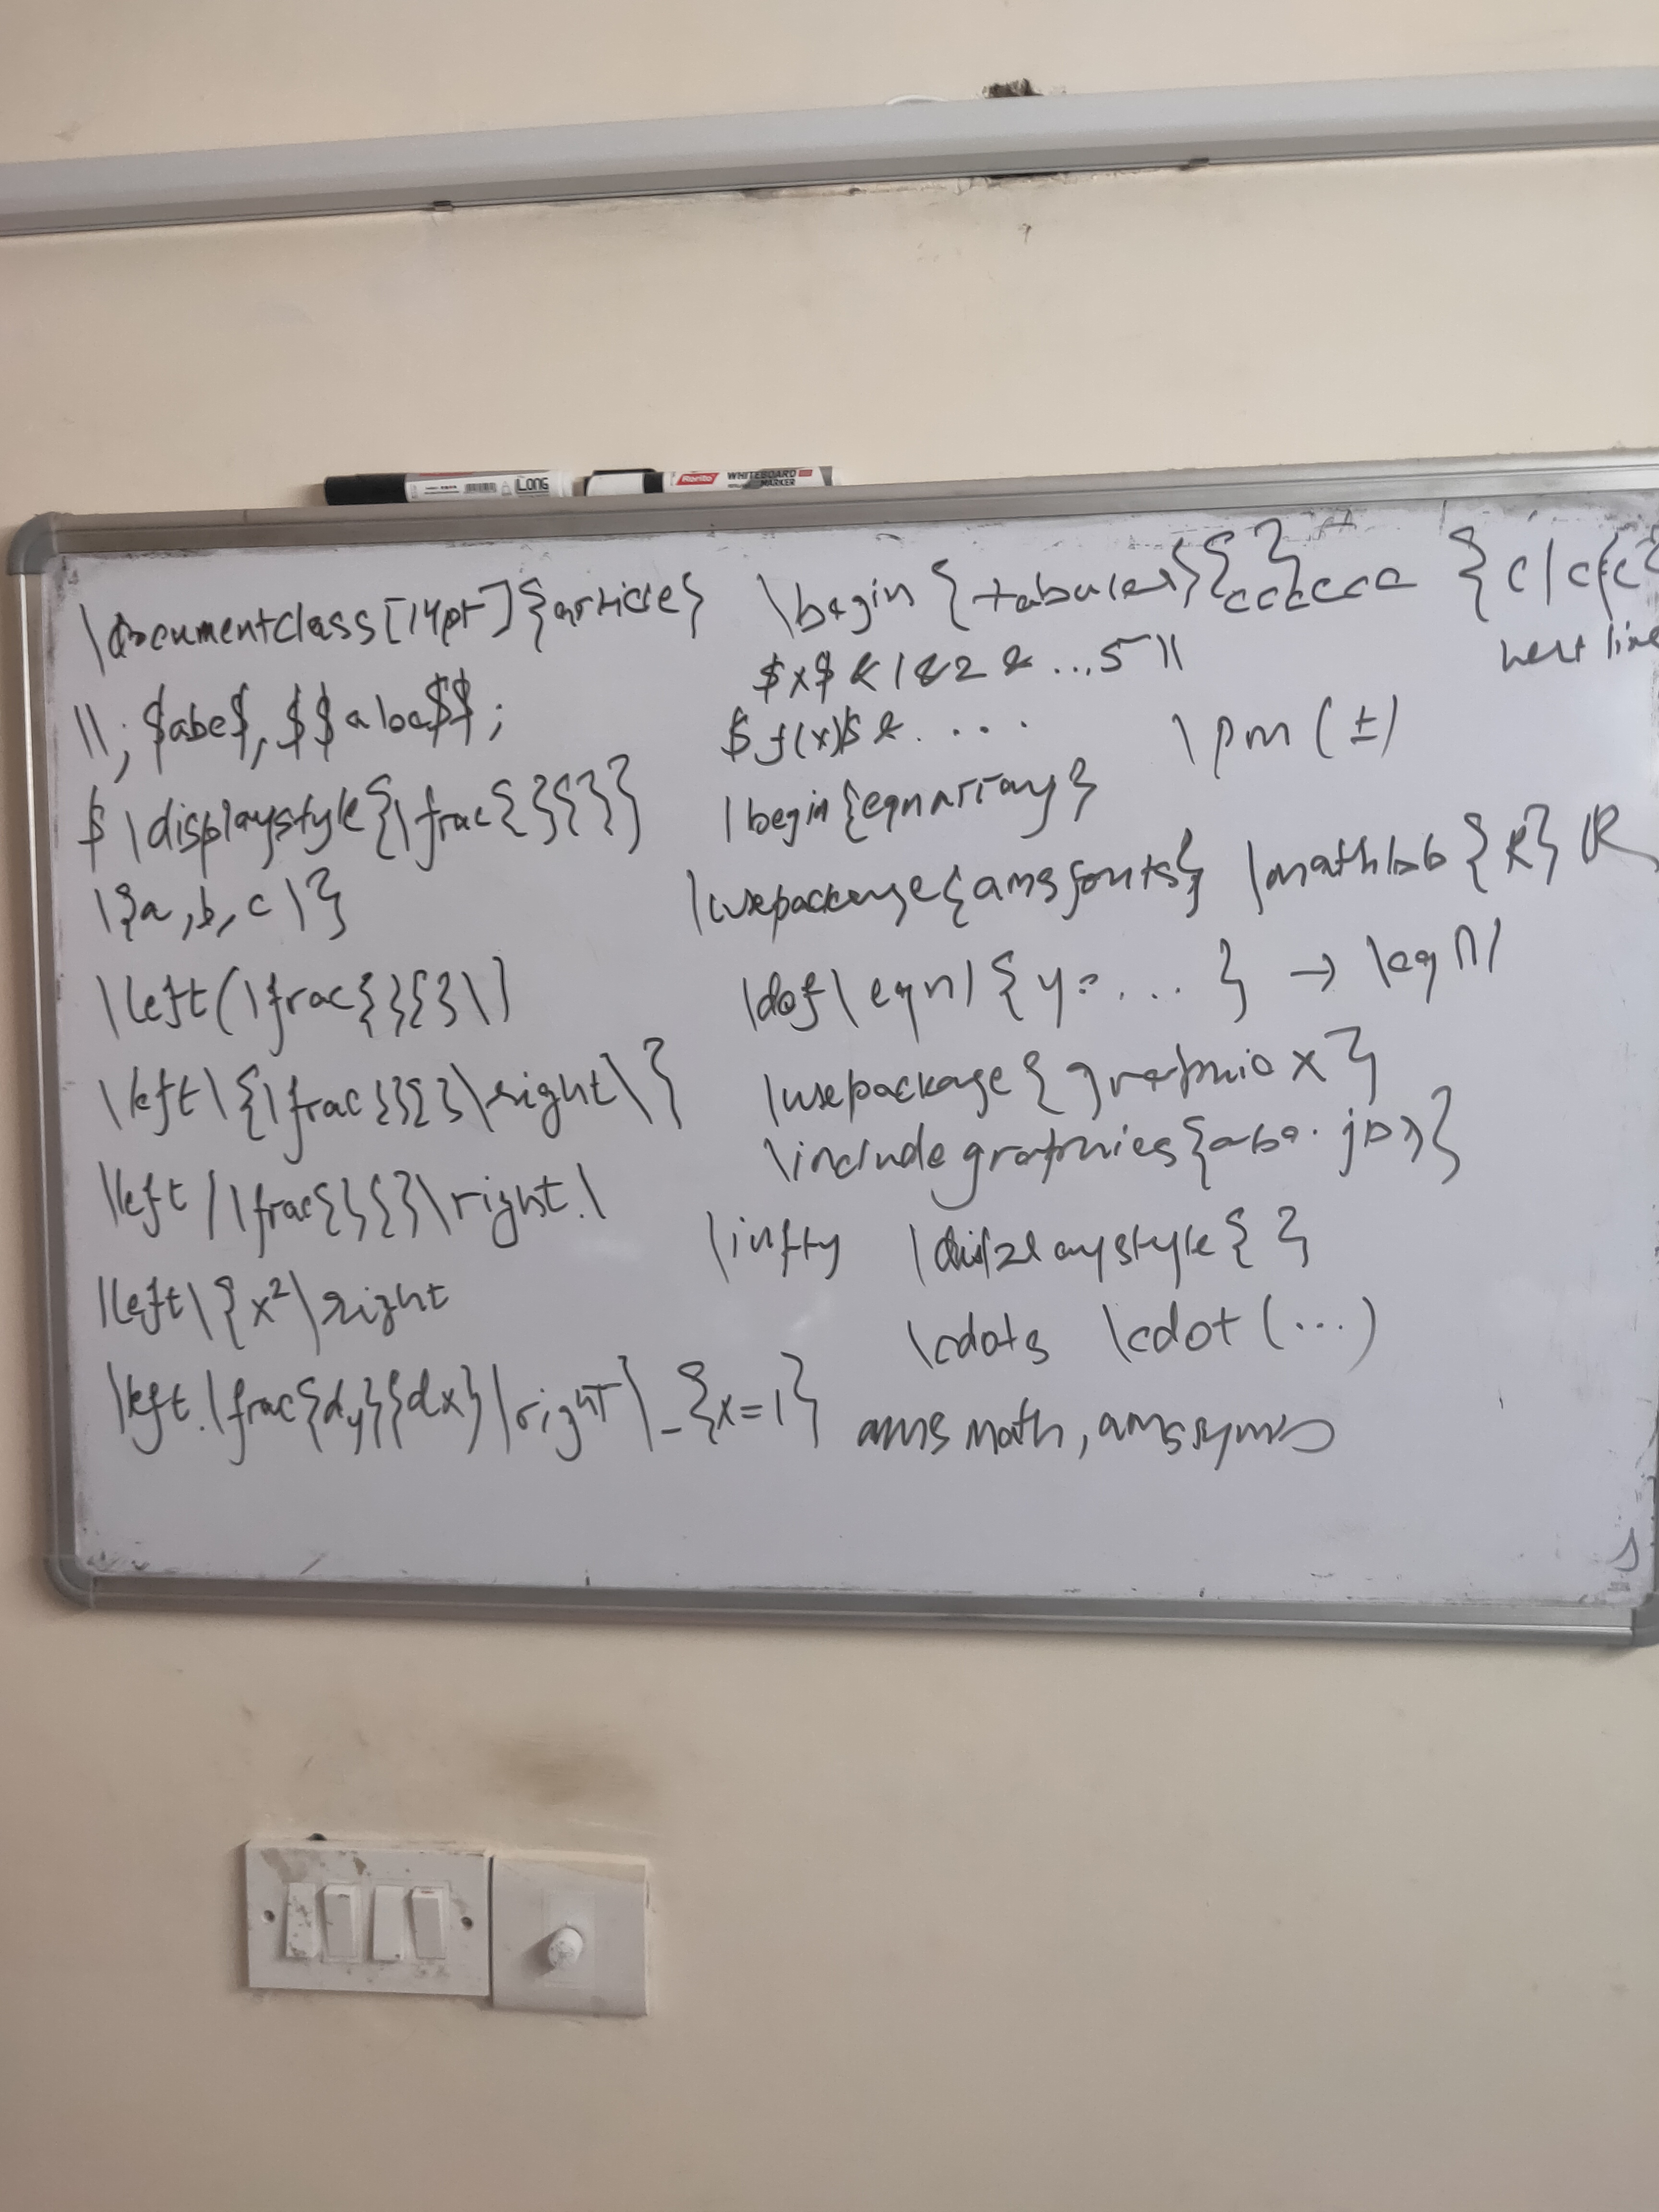 LONG
Rorito WHITEBOARD MARKER
\documentclass[14pt]{article}
\\; $abc$, $$abc$$;
$ \displaystyle{\frac{}{}}
\{a,b,c\}
\left(\frac{}{}\)
\left\{\frac{}{}\right\}
\left/\frac{}{}\right.\
\left\{x²\right
\left.\frac{dy}{dx}\right\_{x=1}
\begin{tabular}{ }cccccc {c|c|c
$x$ & 1 & 2 & ...5 \\ next line
$f(x)$ & . ... \pm (±)
\begin{eqnarray}
\usepackage{amsfonts} \mathbb{R} ℝ
\def\eqn1{y= ... } → \eqn1
\usepackage{graphicx}
\includegraphics{abc.jpg}
\infty \displaystyle{ }
\cdots \cdot (...)
amsmath, amssymb